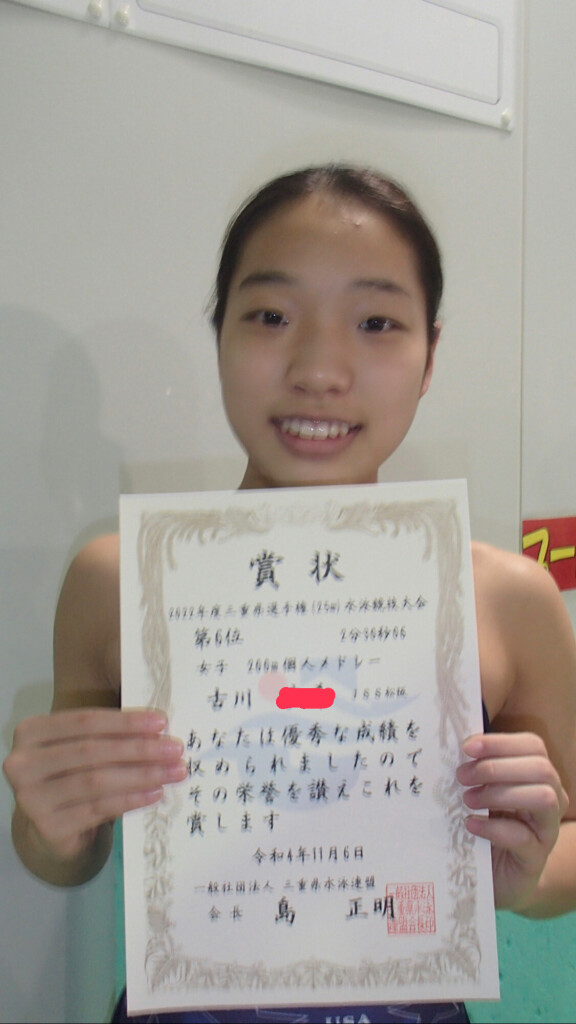 賞状
2022年度三重県選手権(25m)水泳競技大会
第6位 2分36秒66
女子 200m個人メドレー
古川
あなたは優秀な成績を
収められましたので
その栄誉を讃えこれを
賞します
令和4年11月6日
一般社団法人 三重県水泳連盟
会長 島 正明
コー
USA